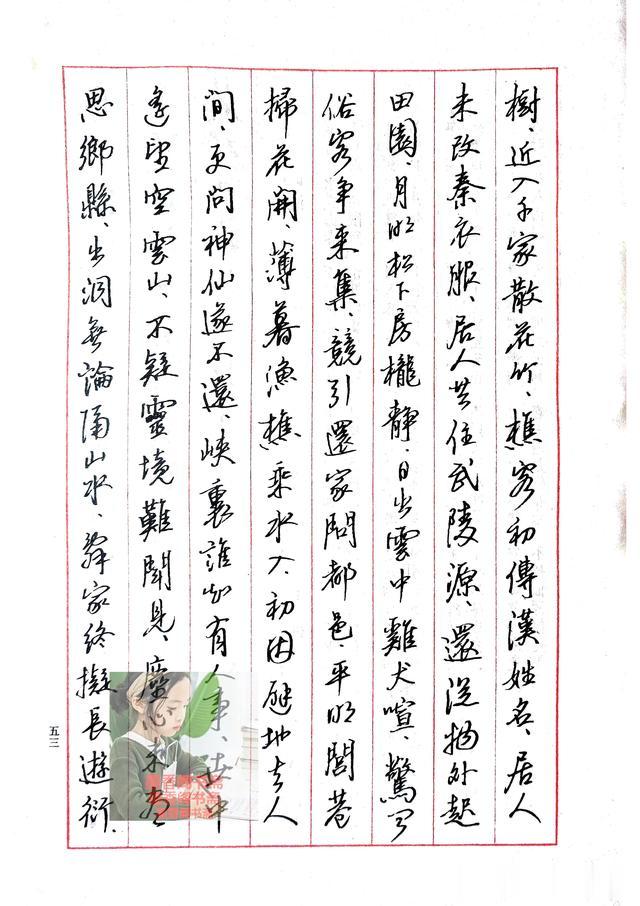 樹、近入千家散花竹、樵客初傳漢姓名、居人
未改秦衣服、居人共住武陵源、還從物外起
田園、月明松下房櫳靜、日出雲中雞犬喧、驚聞
俗客爭來集、競引還家問都邑、平明閭巷
掃花開、薄暮漁樵乘水入、初因避地去人
間、更問神仙遂不還、峽裏誰知有人事、世中
遙望空雲山、不疑靈境難聞見、塵心未盡
思鄉縣、出洞無論隔山水、辭家終擬長遊衍、
五三